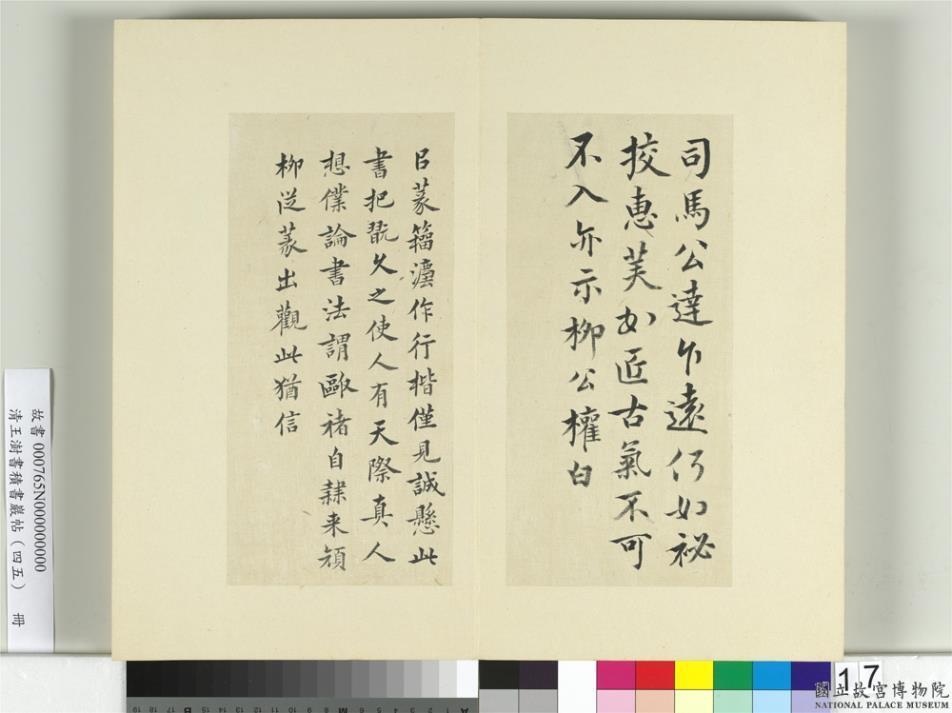 司馬公達乍遠何如祕
挍惠芙如匠古氣不可
不入亦示柳公權白
㠯篆籀灋作行楷僅見誠懸此
書把翫久之使人有天際真人
想僕論書法謂歐褚自隸来顔
柳從篆出觀此猶信
故書 000765N000000000
清王澍書積書巖帖（四五） 冊
17
國立故宮博物院
NATIONAL PALACE MUSEUM